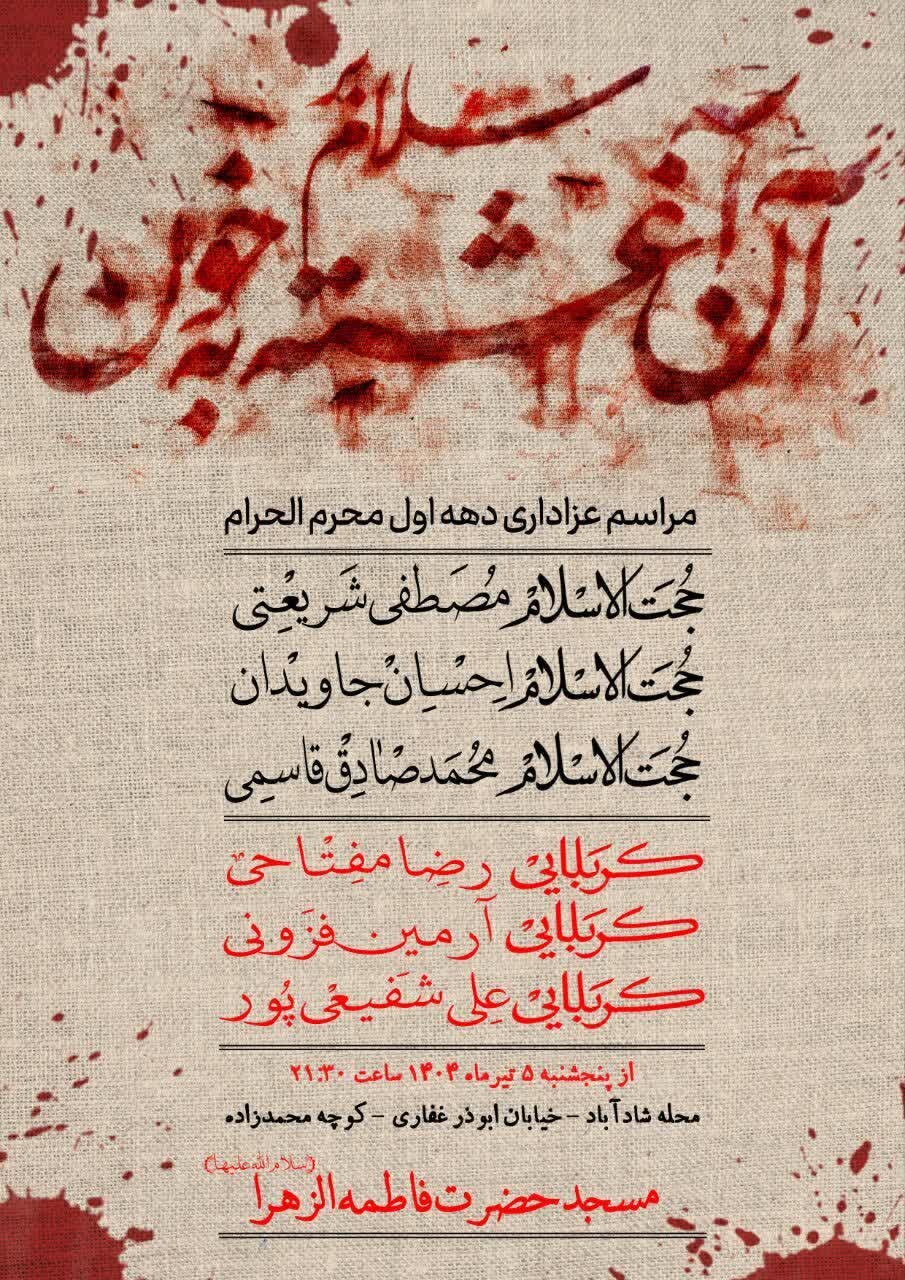 سلام بر
آن آغشته به خون
مراسم عزاداری دهه اول محرم الحرام
حُجَت‌الاسْلامْ مُصَطفی شَریعْتِی
حُجَت‌الاسْلامْ اِحْسِانْ جاویْدان
حُجَت‌الاسْلامْ مُحَمَدصْادِقْ قاسمِی
کَربَلاییْ رضِا مفِتْاحیْ
کَربَلاییْ آرمین فزَونی
کَربَلاییْ عِلی شَفیعْی پُور
از پنجشنبه ۵ تیرماه ۱۴۰۴ ساعت ۲۱:۳۰
محله شادآباد - خیابان ابوذر غفاری - کوچه محمدزاده
(سلام الله علیها)
مسجد حضرت فاطمه الزهرا